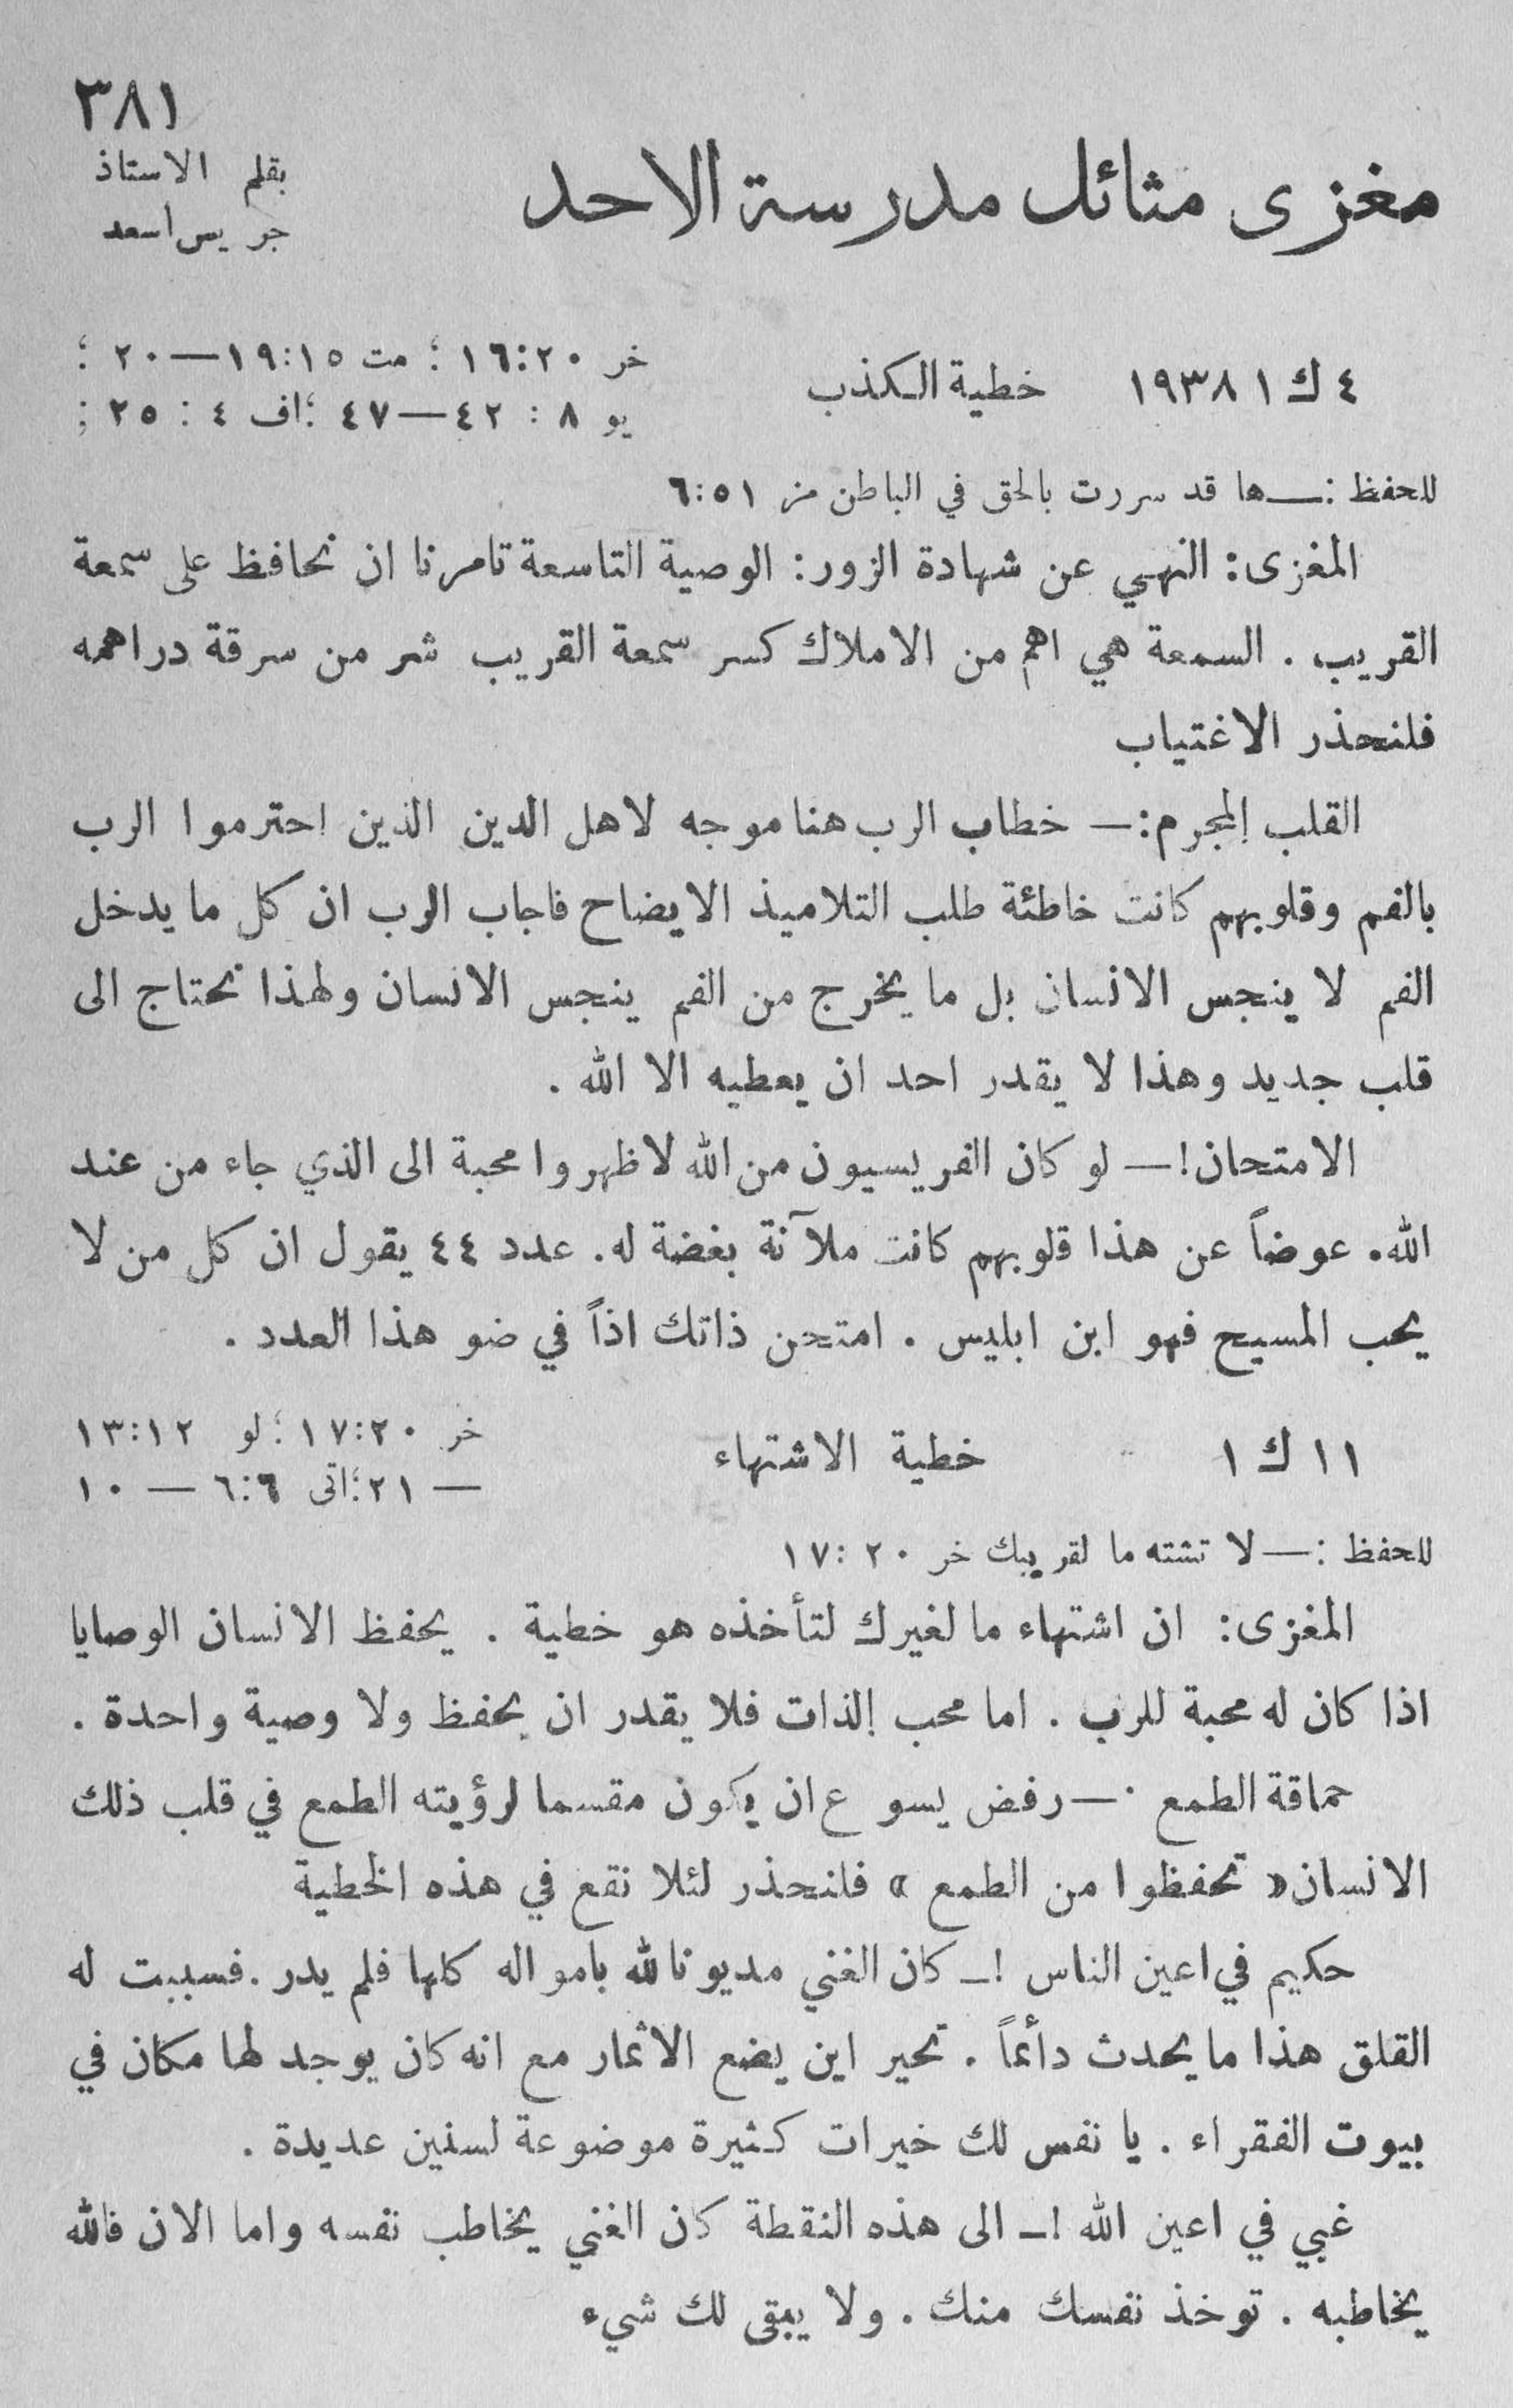 ٣٨١
مغزى مثائل مدرسة الاحد
بقلم الاستاذ
جريس اسعد
٤ ك ١ ١٩٣٨ خطية الكذب
خر ١٦:٢٠ ؛ مت ١٩:١٥—٢٠ ؛
يو ٨ : ٤٢—٤٧ ؛اف ٤ : ٢٥ ;
للحفظ :—ها قد سررت بالحق في الباطن مز ٦:٥١
المغزى: النهي عن شهادة الزور: الوصية التاسعة تامرنا ان نحافظ على سمعة
القريب . السمعة هي اهم من الاملاك كسر سمعة القريب شر من سرقة دراهمه
فلنحذر الاغتياب
القلب المجرم:— خطاب الرب هنا موجه لاهل الدين الذين احترموا الرب
بالفم وقلوبهم كانت خاطئة طلب التلاميذ الايضاح فاجاب الرب ان كل ما يدخل
الفم لا ينجس الانسان بل ما يخرج من الفم ينجس الانسان ولهذا نحتاج الى
قلب جديد وهذا لا يقدر احد ان يعطيه الا الله .
الامتحان!— لو كان الفريسيون من الله لاظهروا محبة الى الذي جاء من عند
الله. عوضاً عن هذا قلوبهم كانت ملآنة بغضة له. عدد ٤٤ يقول ان كل من لا
يحب المسيح فهو ابن ابليس . امتحن ذاتك اذاً في ضو هذا العدد .
١١ ك ١ خطية الاشتهاء
خر ١٧:٢٠ ؛ لو ١٣:١٢
— ٢١ ؛اتى ٦:٦ — ١٠
للحفظ :— لا تشته ما لقريبك خر ٢٠ :١٧
المغزى: ان اشتهاء ما لغيرك لتأخذه هو خطية . يحفظ الانسان الوصايا
اذا كان له محبة للرب . اما محب الذات فلا يقدر ان يحفظ ولا وصية واحدة .
حماقة الطمع ·— رفض يسوع ان يكون مقسما لرؤيته الطمع في قلب ذلك
الانسان« تحفظوا من الطمع » فلنحذر لئلا نقع في هذه الخطية
حكيم في اعين الناس !— كان الغني مديونا لله بامواله كلها فلم يدر .فسببت له
القلق هذا ما يحدث دائماً . تحير اين يضع الاثمار مع انه كان يوجد لها مكان في
بيوت الفقراء . يا نفس لك خيرات كثيرة موضوعة لسنين عديدة .
غبي في اعين الله !— الى هذه النقطة كان الغني يخاطب نفسه واما الان فالله
يخاطبه . توخذ نفسك منك . ولا يبقى لك شيء